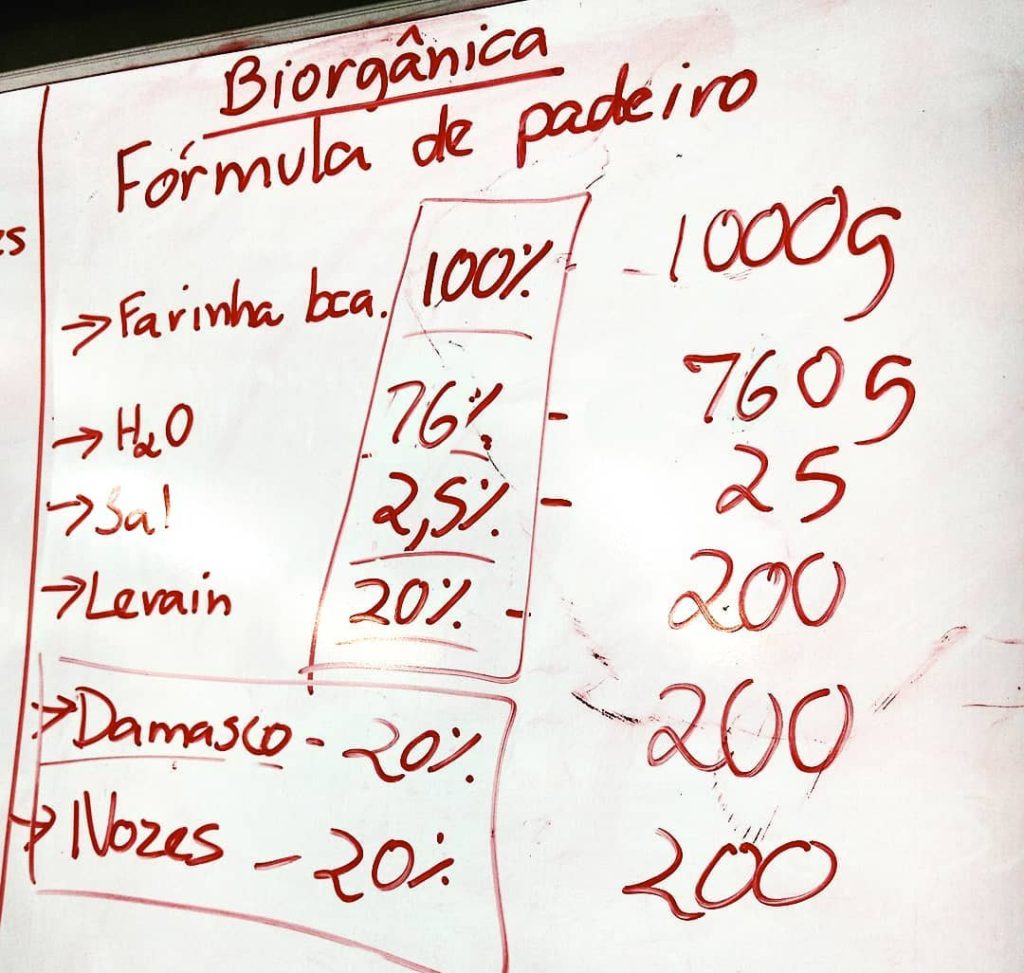 Biorgânica
Fórmula de padeiro
es
→ Farinha bca. 100% - 1000g
→ H₂O 76% - 760g
→ Sal 2,5% - 25
→ Levain 20% - 200
→ Damasco - 20% 200
→ Nozes - 20% 200